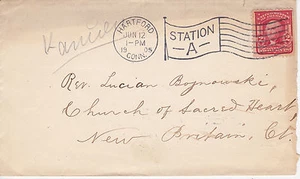 HARTFORD
JUN 12
1-PM
1905
CONN.
STATION
-A-
Rev. Lucian Bojnowski,
Church of Sacred Heart,
New Britain, Ct.